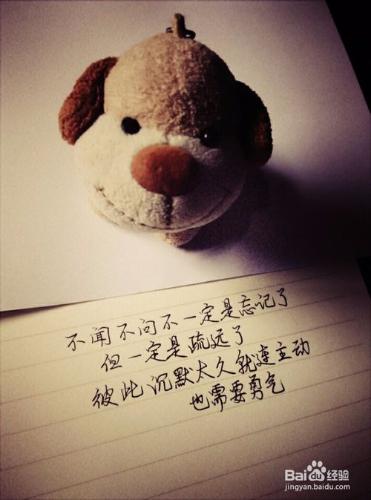 不闻不问不一定是忘记了
但一定是疏远了
彼此沉默太久就连主动
也需要勇气
Baidu经验
jingyan.baidu.com